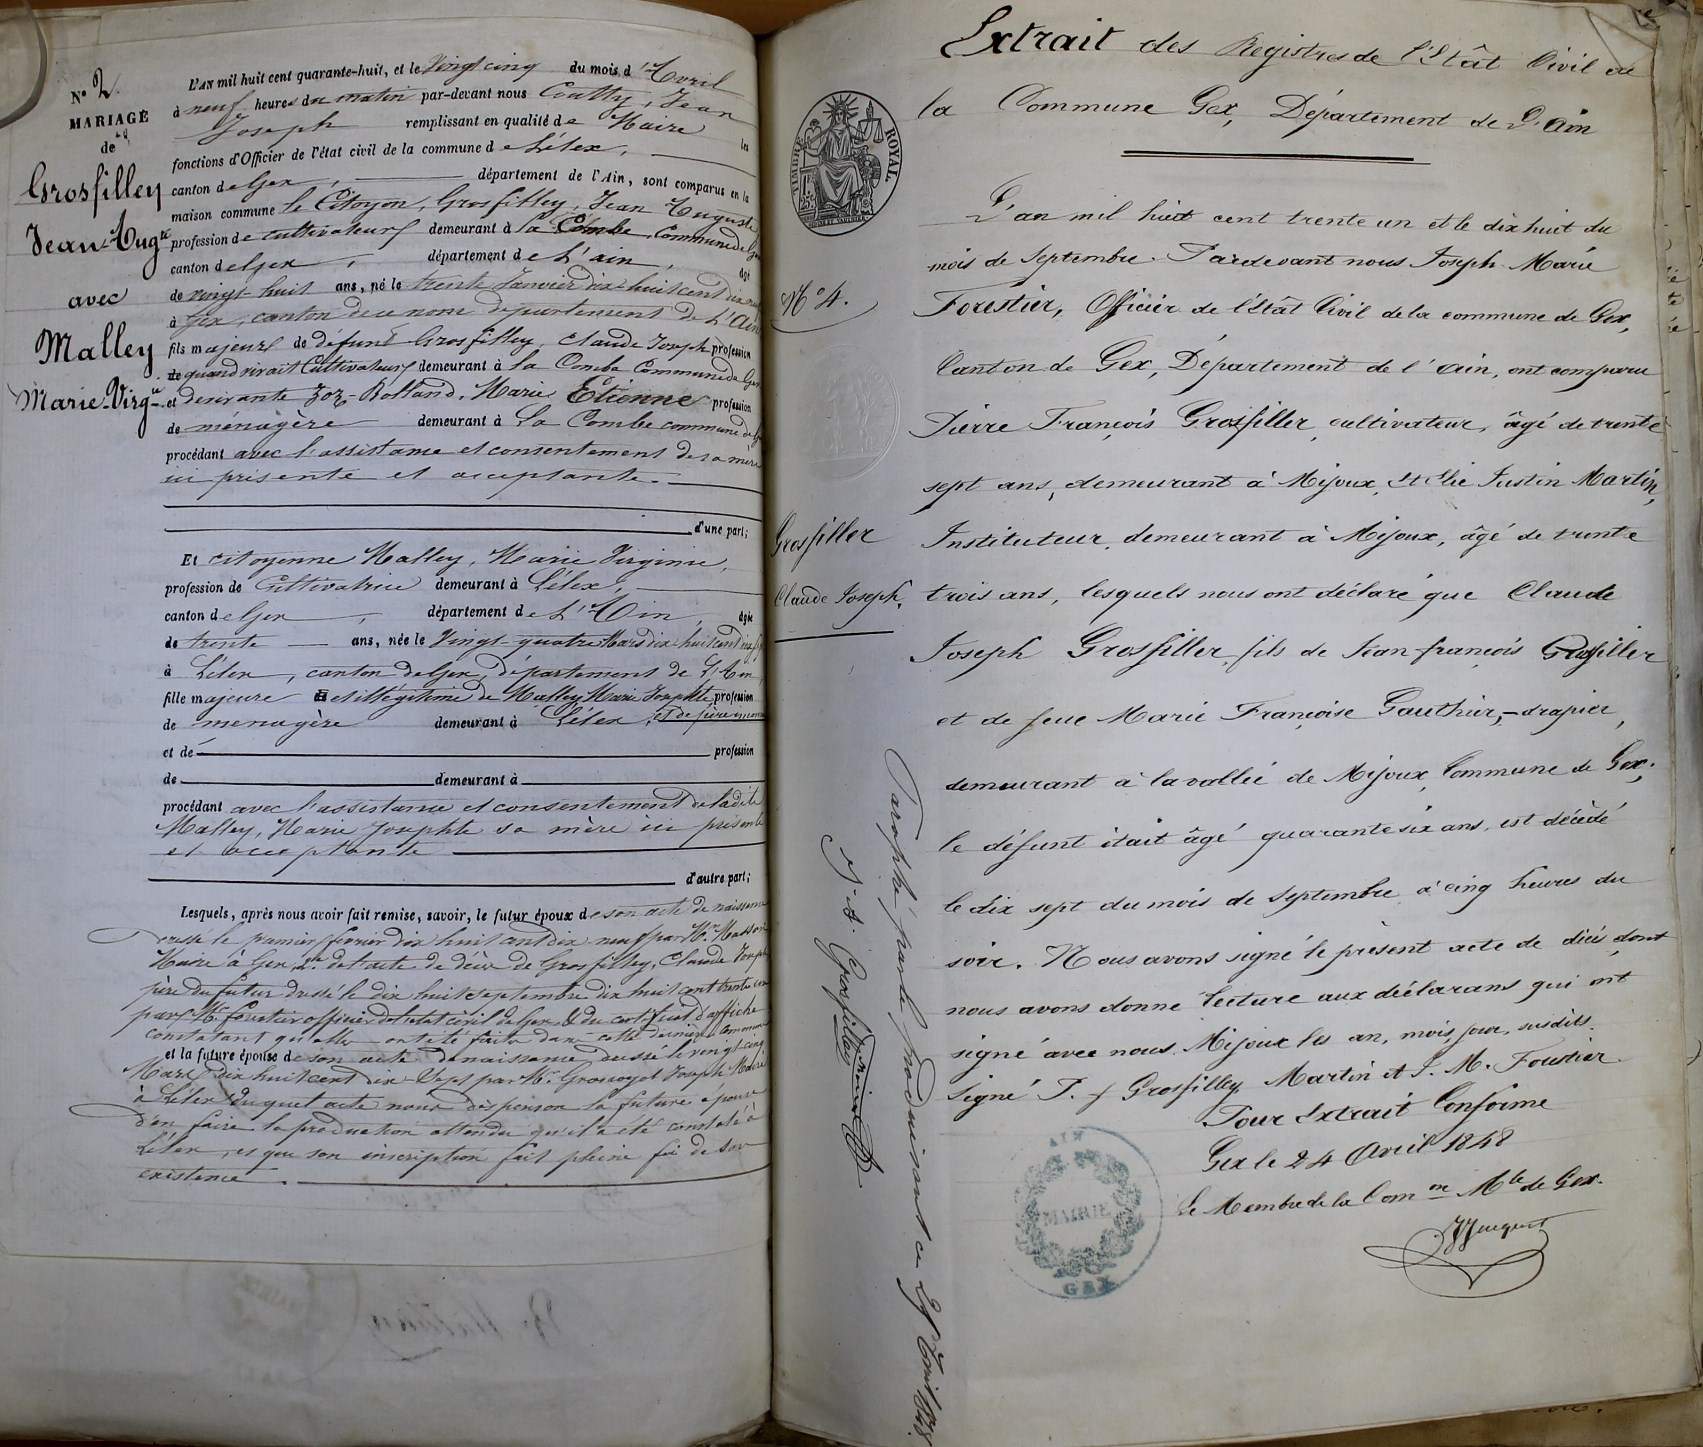 N° 2.
MARIAGE
de
Grosfilley
Jean-Augte
avec
Malley
Marie-Virgie
L'AN mil huit cent quarante-huit, et le Vingt cinq du mois d'Avril
à neuf heures du matin par-devant nous Coutty, Jean
Joseph remplissant en qualité de Maire les
fonctions d'Officier de l'état civil de la commune de Lélex,
canton de Gex, département de l'Ain, sont comparus en la
maison commune le Citoyen, Grosfilley, Jean Auguste
profession de cultivateur demeurant à La Combe, Commune de Gex
canton de Gex, département de L'ain, âgé
de vingt-huit ans, né le trente Janvier dix-huit cent dix neuf
à Gex, canton de ce nom département de L'Ain
fils majeur de défunt Grosfilley, Claude Joseph profession
de quand vivait Cultivateur demeurant à la Combe Commune de Gex
et de vivante Zoz-Rolland, Marie Etienne profession
de ménagère demeurant à La Combe commune de Gex
procédant avec l'assistance et consentement de sa mère
ici présente et acceptante.
d'une part;
Et citoyenne Malley, Marie Virginie,
profession de Cultivatrice demeurant à Lélex,
canton de Gex, département de L'Ain, âgée
de trente ans, née le Vingt-quatre Mars dix-huit cent dix sept
à Lélex, canton de Gex, département de L'Ain
fille majeure et illégitime de Malley, Marie Josephte profession
de ménagère demeurant à Lélex, et de père inconnu
et de profession
de demeurant à
procédant avec l'assistance et consentement de ladite
Malley, Marie Josephte sa mère ici présente
et acceptante
d'autre part;
Lesquels, après nous avoir fait remise, savoir, le futur époux de son acte de naissance
dressé le premier février dix huit cent dix neuf par Mr. Masson
Maire à Gex, de l'acte de décès de Grosfilley, Claude Joseph
père du futur dressé le dix huit septembre dix huit cent trente un
par Mr forestier officier de l'etat civil de Gex, & du certificat d'affiche
constatant qu'elles ont été faites dans cette dernière commune
et la future épouse de son acte de naissance, dressé le vingt-cinq
Mars dix huit cent dix-Sept par Mr. Grosgojat Joseph Maire
à Lélex duquel acte nous dispensons la future épouse
d'en faire la production attendu qu'il a été constaté à
Lélex, et que son inscription fait pleine foi de son
existence.
Extrait des Registres de l'Etât Civil de
la Commune Gex, Département de L'ain
TIMBRE ROYAL
N° 4.
Grosfiller
Claude Joseph.
L'an mil huit cent trente un et le dix huit du
mois de Septembre. Pardevant nous Joseph-Marie
Forestier, Officier de l'Etât Civil de la commune de Gex,
Canton de Gex, Département de l'ain, ont comparu
Pierre François Grosfiller, cultivateur, âgé de trente
sept ans, demeurant à Mijoux, et Elie Justin Martin,
Instituteur, demeurant à Mijoux, âgé de trente
trois ans, lesquels nous ont déclaré que Claude
Joseph Grosfiller, fils de Jean-françois Grosfiller
et de feue Marie Françoise Gauthier,-drapier,
demeurant à la vallée de Mijoux, Commune de Gex;
le défunt était âgé quarante six ans, est décédé
le dix sept du mois de Septembre à cinq heures du
soir. Nous avons signé le présent acte de décès, dont
nous avons donné lecture aux déclarans qui ont
signé avec nous. Mijoux les an, mois, jour, susdits.
Signé P. f Grosfilley, Martin et J. M. Forestier
Pour Extrait Conforme
Gex le 24 Avril 1848
Le Membre de la Comon Mle de Gex.
AIN
MAIRIE
GEX
Paraphé par le produisant ce 25 Avril 1848.
J. A. Grosfilley